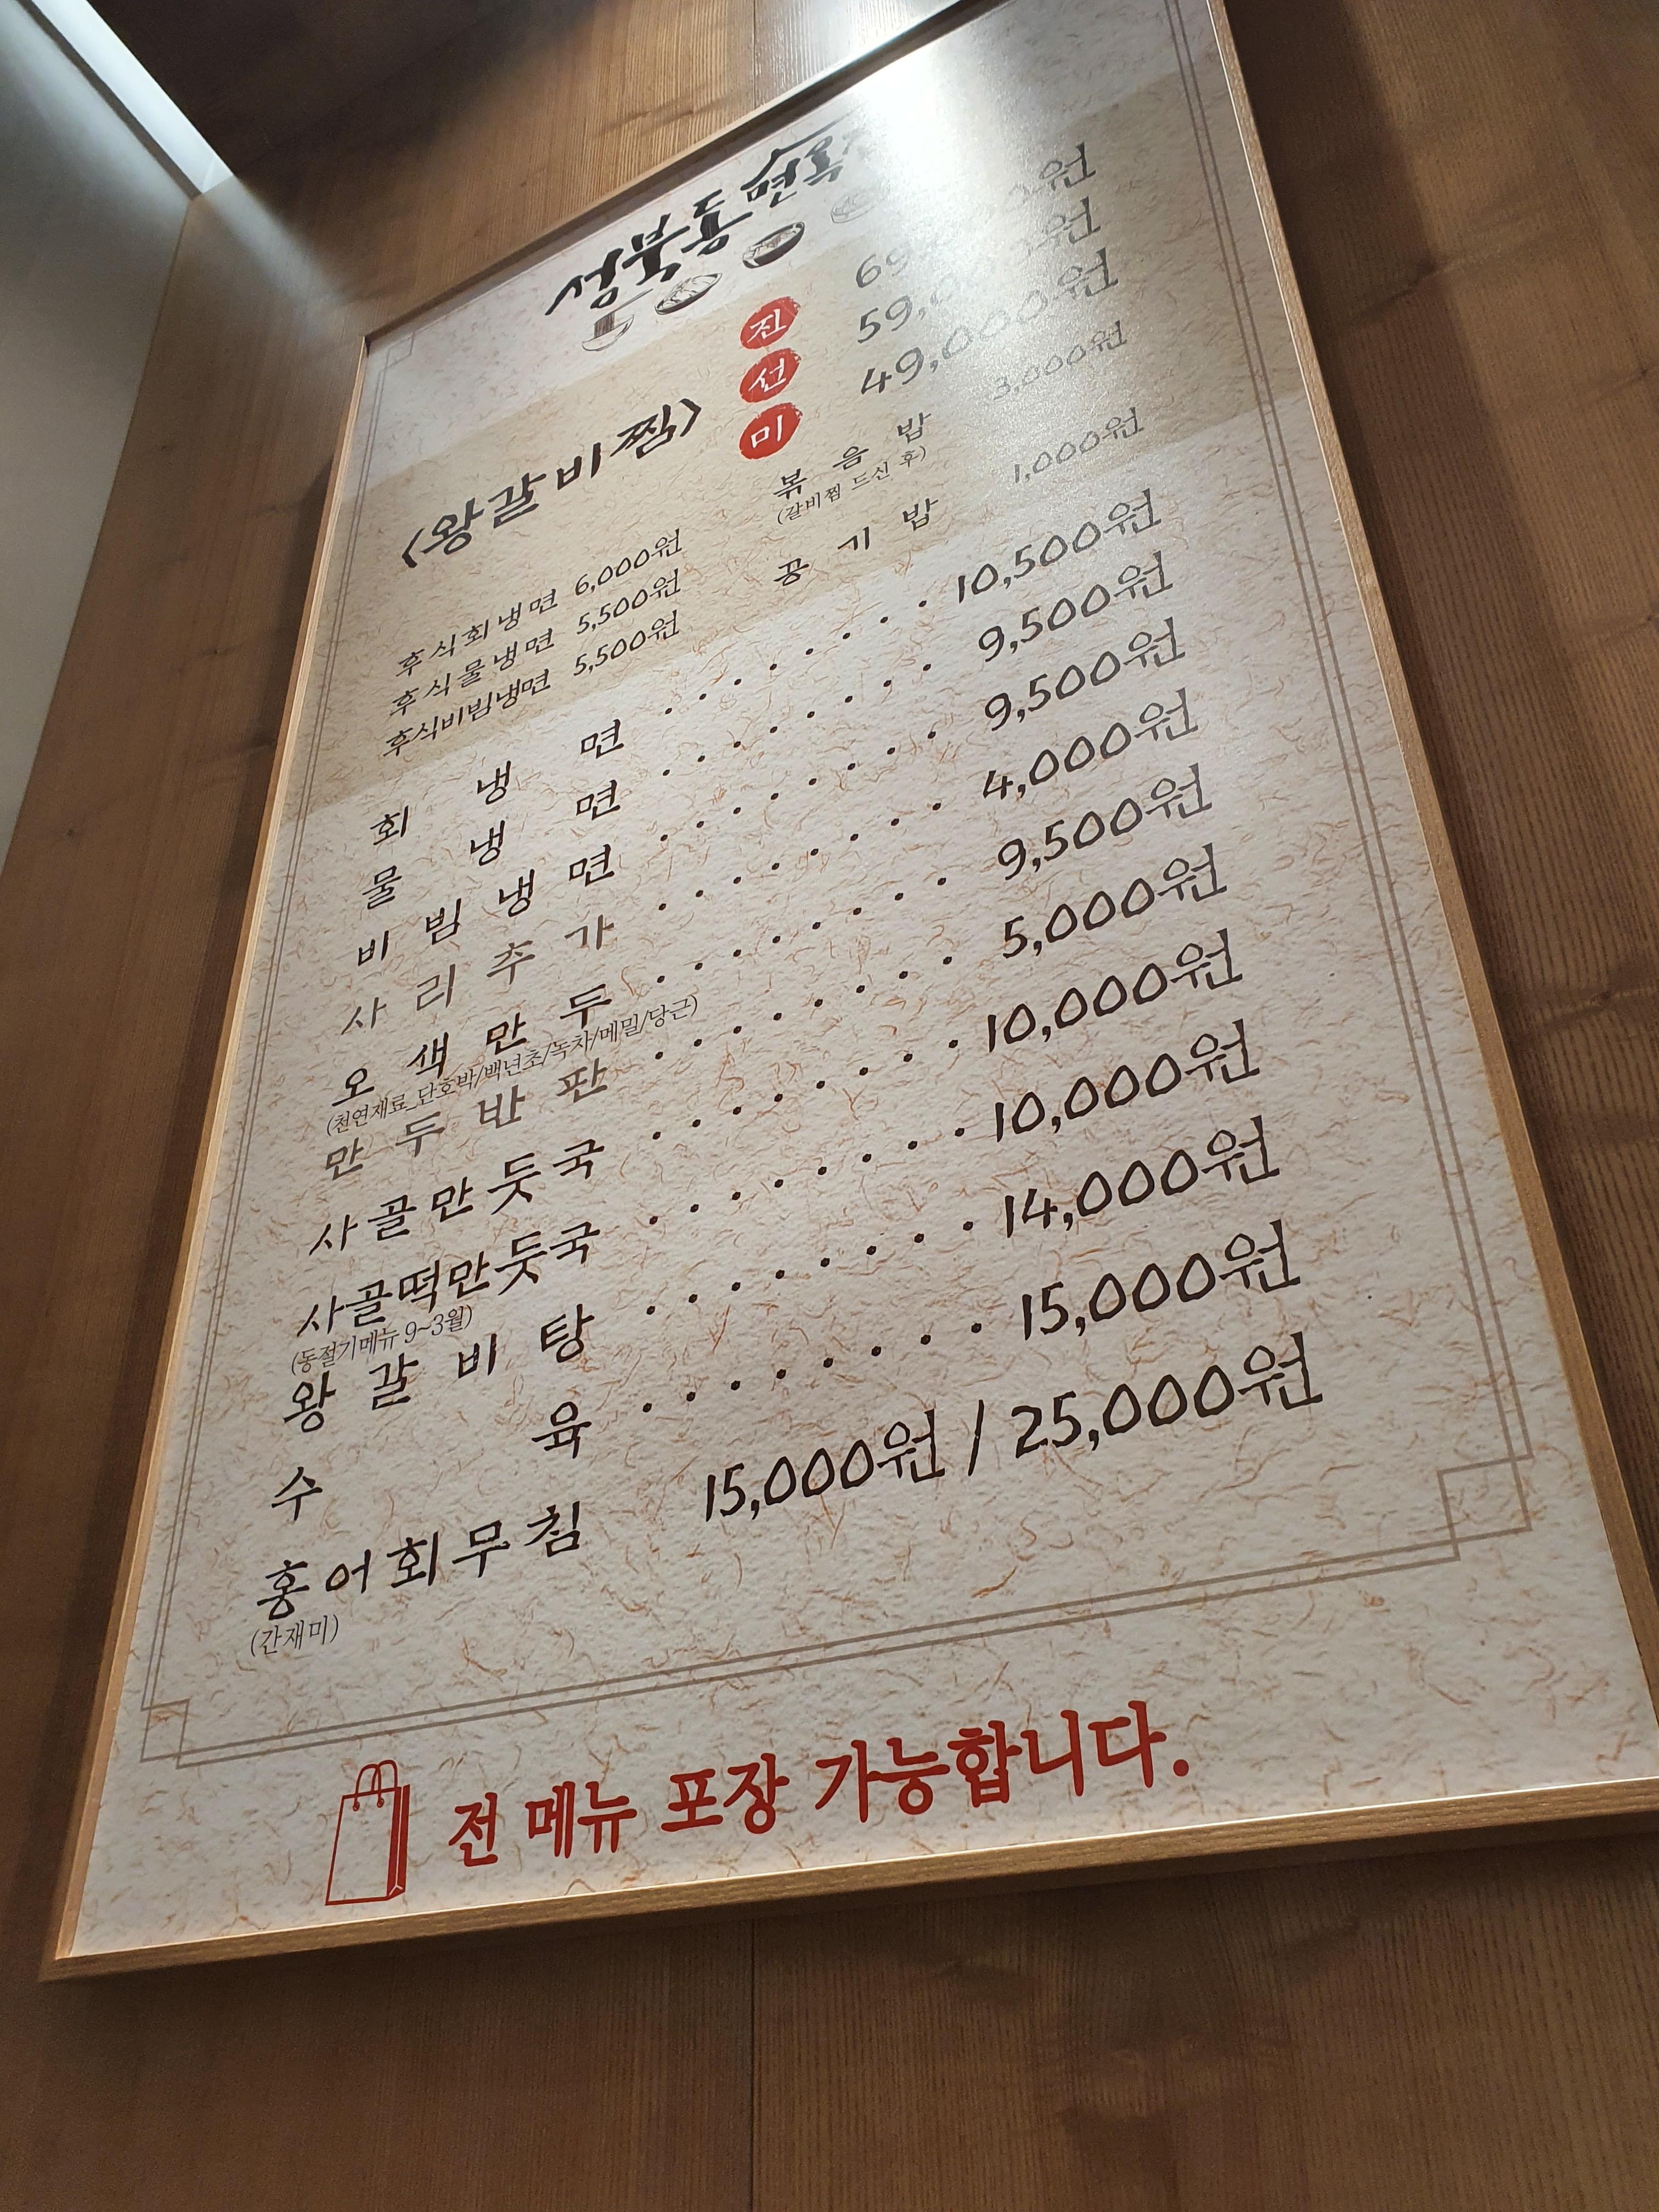 성북동면옥
<왕갈비찜>
진
선 59,000원
미 49,000원
후식회냉면 6,000원
후식물냉면 5,500원
후식비빔냉면 5,500원
볶음밥 3,000원
(갈비찜 드신 후)
공기밥 1,000원
회냉면 . . . . . . . . 10,500원
물냉면 . . . . . . . . 9,500원
비빔냉면 . . . . . . . . 9,500원
사리추가 . . . . . . . . 4,000원
오색만두 . . . . . . . . 9,500원
(천연재료_단호박/백년초/녹차/메밀/당근)
만두반판 . . . . . . . . 5,000원
사골만둣국 . . . . . . . . 10,000원
사골떡만둣국 . . . . . . . . 10,000원
(동절기메뉴 9~3월)
왕갈비탕 . . . . . . . . 14,000원
수육 . . . . . . . . 15,000원
홍어회무침 15,000원 / 25,000원
(간재미)
전 메뉴 포장 가능합니다.